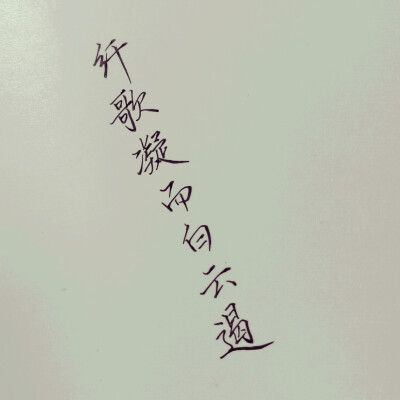 纤歌凝而白云遏